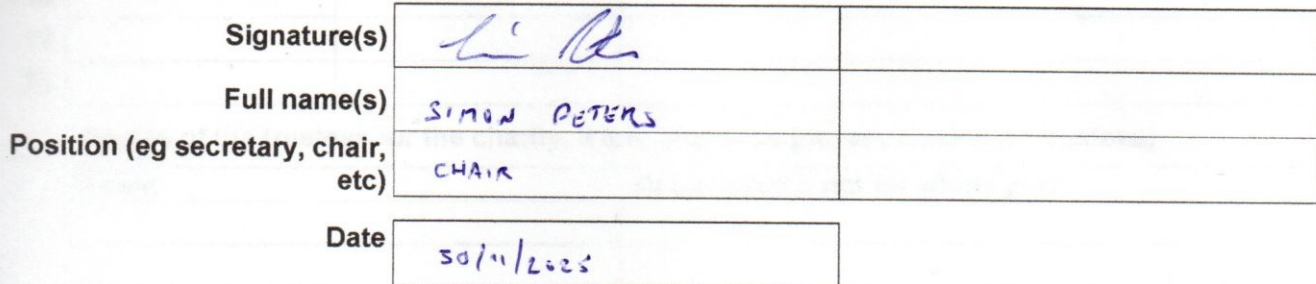 Signature(s)
Full name(s) SIMON PETERS
Position (eg secretary, chair, etc) CHAIR
Date 30/11/2025